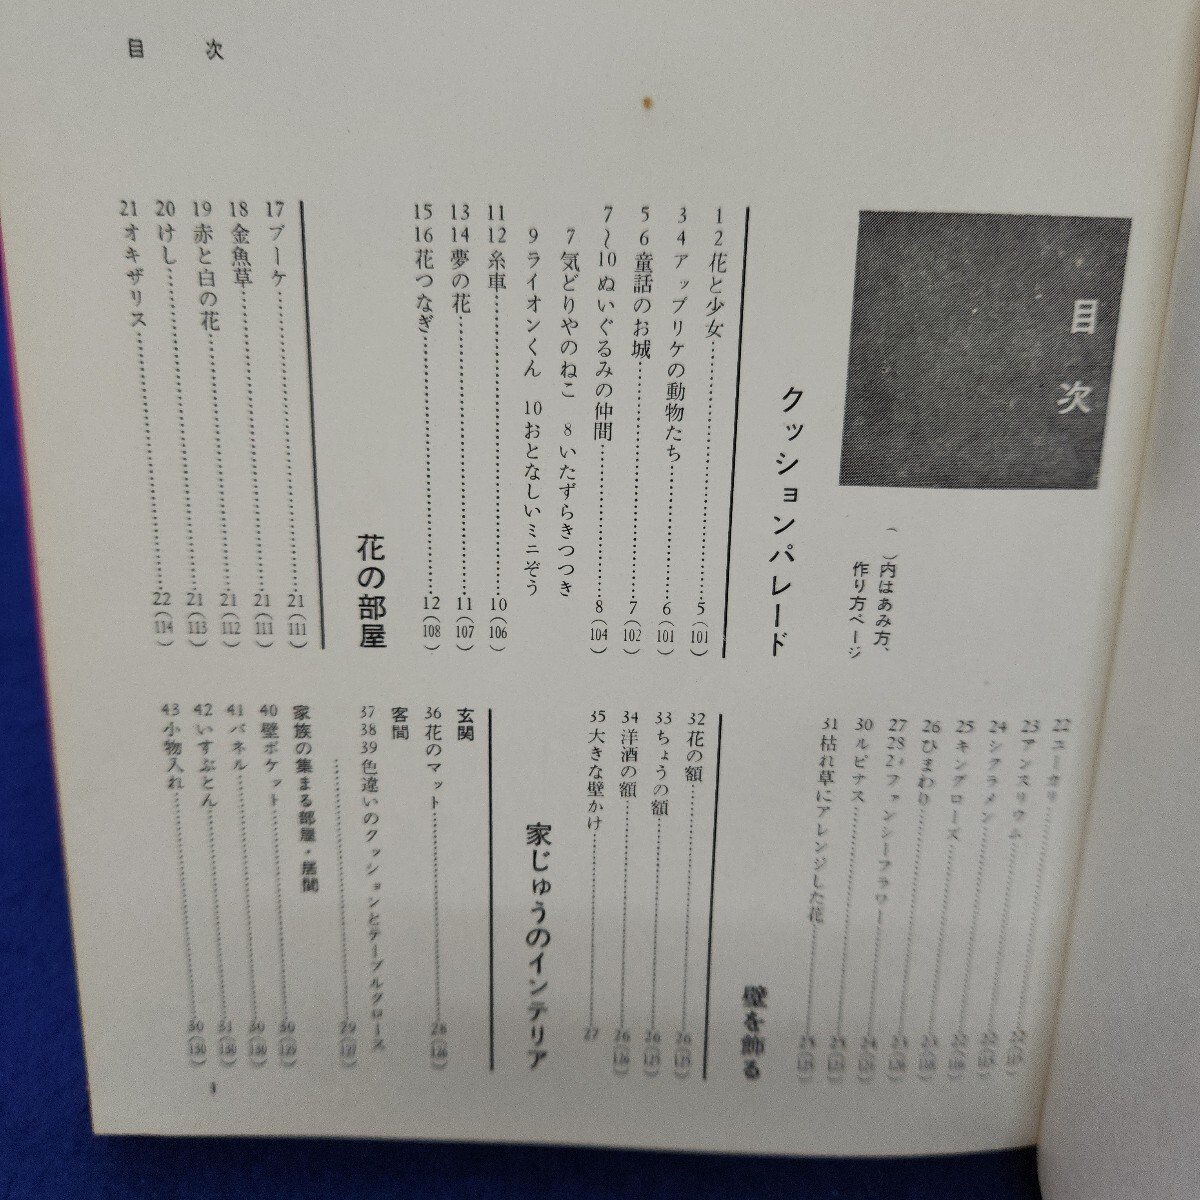 目次
目次
（　）内はあみ方、
作り方ページ
クッションパレード
1 2 花と少女……5（101）
3 4 アップリケの動物たち……6（101）
5 6 童話のお城……7（102）
7〜10 ぬいぐるみの仲間……8（104）
7 気どりやのねこ　8 いたずらきつつき
9 ライオンくん　10 おとなしいミニぞう
11 12 糸車……10（106）
13 14 夢の花……11（107）
15 16 花つなぎ……12（108）
花の部屋
17 ブーケ……21（111）
18 金魚草……21（111）
19 赤と白の花……21（112）
20 けし……21（113）
21 オキザリス……22（114）
22 ユーカリ……22
23 アンスリウム……22
24 シクラメン……22
25 キングローズ……22（116）
26 ひまわり……23
27 28 29 ファンシーフラワー
30 ルピナス
31 枯れ草にアレンジした花……25
壁を飾る
32 花の額……26（125）
33 ちょうの額……26（125）
34 洋酒の額……26（126）
35 大きな壁かけ……27
家じゅうのインテリア
玄関
36 花のマット……28（126）
客間
37 38 39 色違いのクッションとテーブルクロース
……29（127）
家族の集まる部屋・居間
40 壁ポケット……30（129）
41 パネル……30（130）
42 いすぶとん……31（130）
43 小物入れ……30（130）